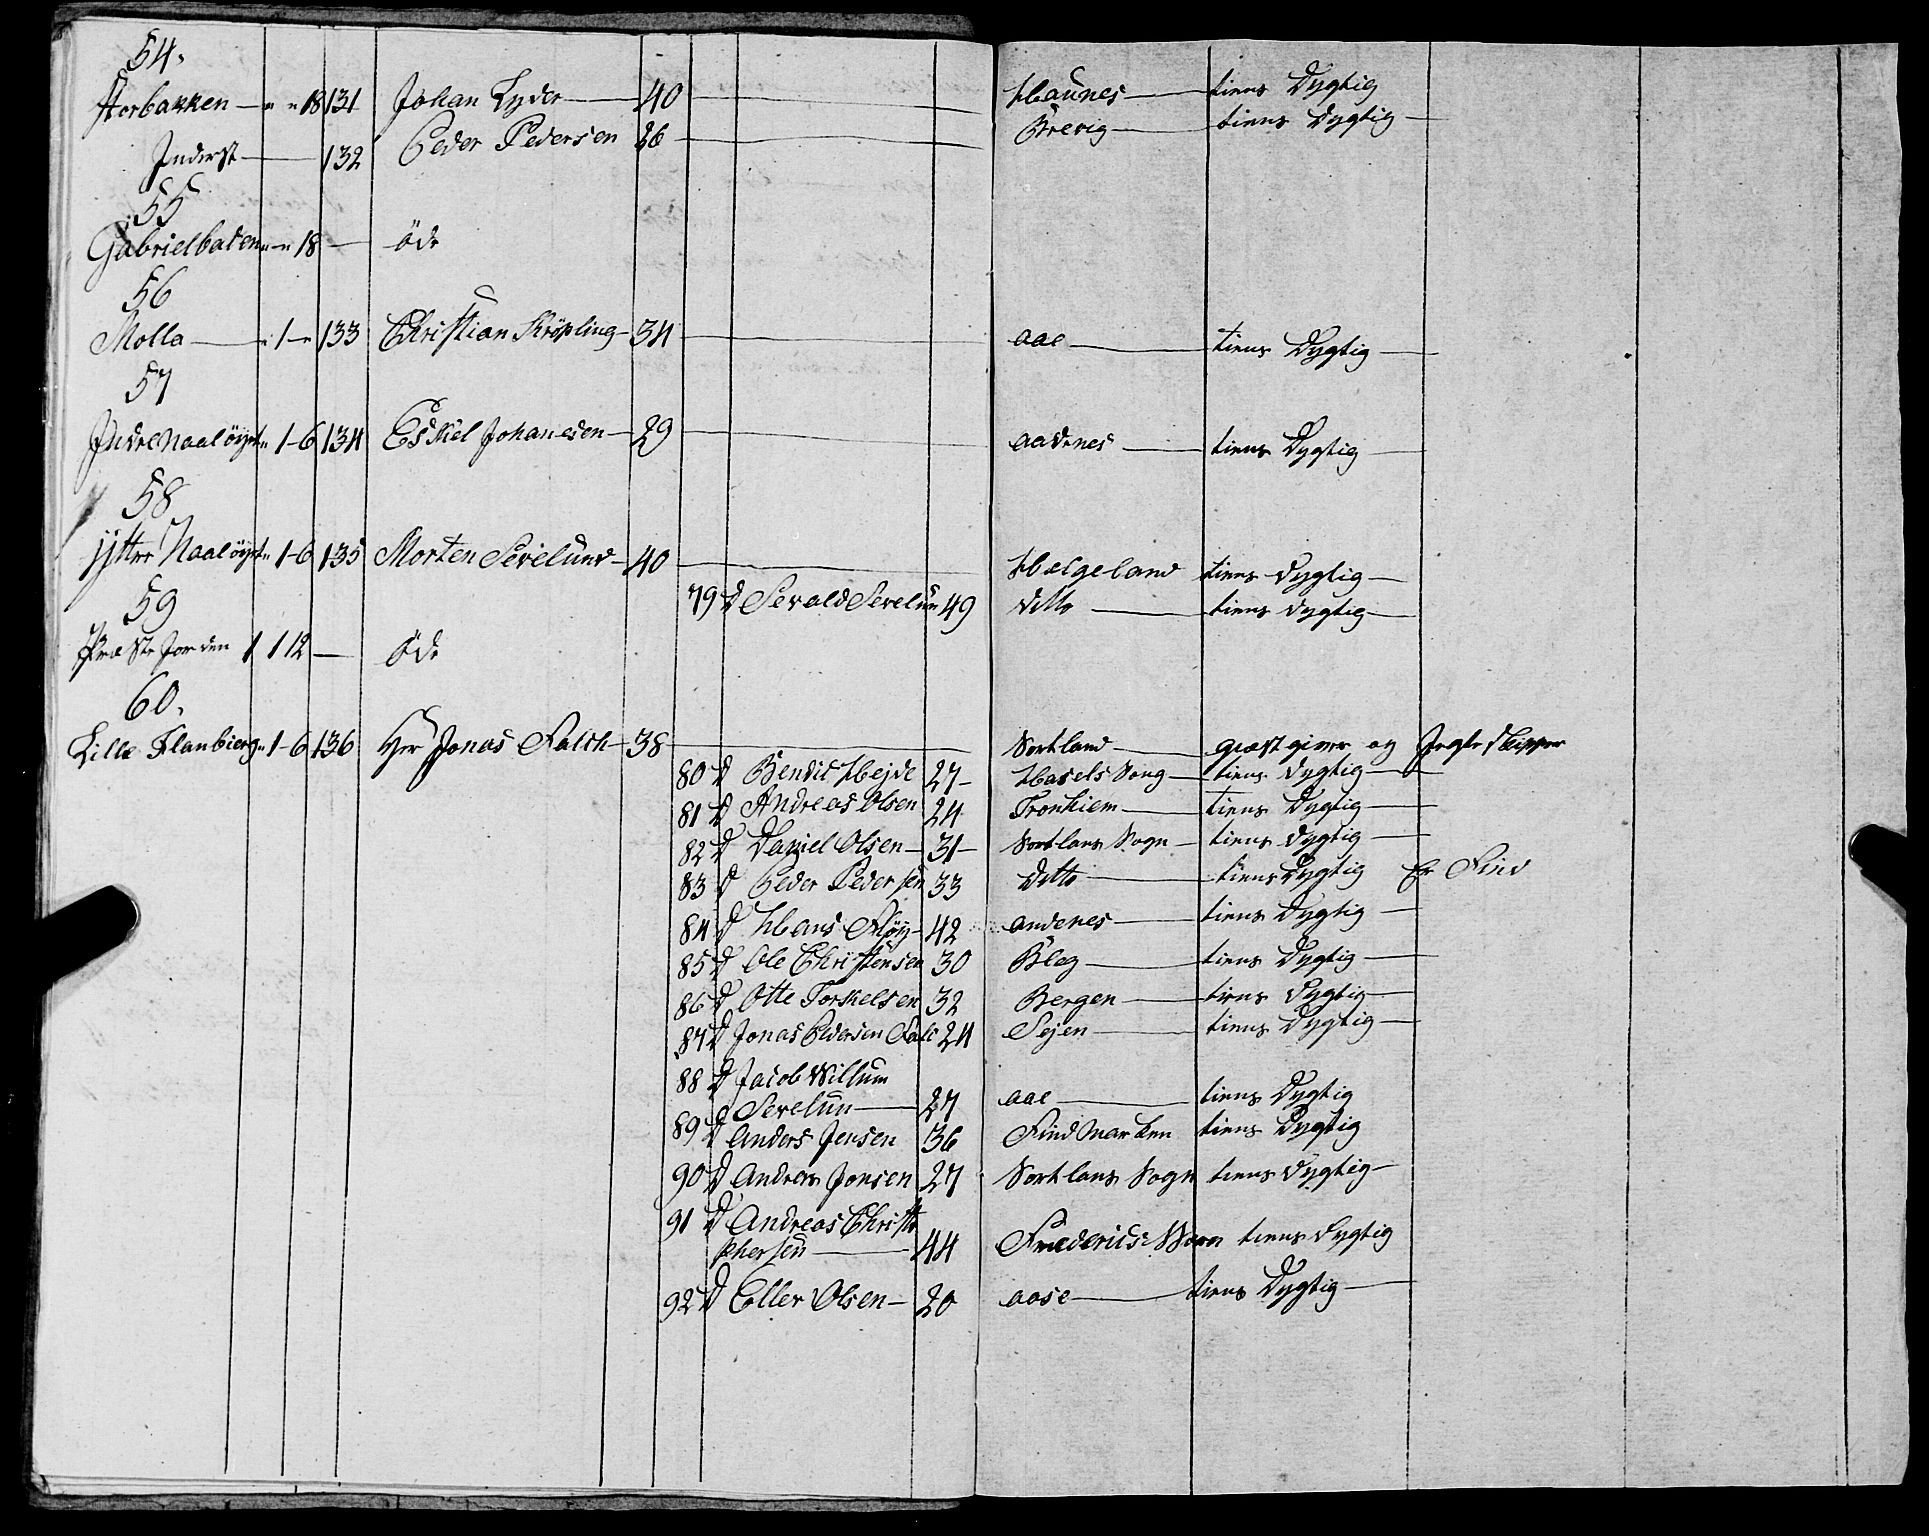 54.
Storbakken — " " 18 131 Johan Lyder — 40 — Haunes — tiens Dygtig
Inderst — 132 Peder Pedersen 26 — Brevig — tiens Dygtig —
55
Gabrielbaden " — " 18 — öde
56
Molla — " 1 — " 133 Christian Kröpling — 34 — aae — tiens Dygtig —
57
Indre Naalöyet " 1 — 6 134 Eskiel Johanesen — 29 — aadnes — tiens Dygtig —
58
ÿtter Naalöyet " 1 — 6 135 Morten Sevelund — 40 — Helgeland tiens Dygtig —
79 D Sevald Sevelun 49 Ditto — tiens Dygtig —
59
Præste Jorden 1 1 12 — öde
60.
Lille Flanbierg " 1 — 6 136 Hr Jonas Falch — 38 — Sortland — giæstgiver og Jegteskipper
80 D Bendic Heide 27 — Hasels Song — tiens Dygtig —
81 D Andreas Olsen 24 Tronhiem — tiens Dygtig —
82 D Daniel Olsen — 31 — Sortlans Sogn — tiens Dygtig —
83 D Peder Pedersen 33 Ditto — tiens Dygtig Er Find
84 D Hans Flöy — 42 andenes — tiens Dygtig —
85 D Ole Christensen 30 Bleg — tiens Dygtig —
86 D Otte Torkelsen 32 Bergen — tiens Dygtig —
87 D Jonas Pedersen Falc 24 Sejen — tiens Dygtig —
88 D Jacob Willum
Sevelun — 27 aae — tiens Dygtig
89 D Anders Jensen 36 Find Marken tiens Dygtig
90 D Anders Jonsen 27 Sortlans Sogn tiens Dygtig —
91 D Andreas Christo
phersen — 44 Fredericks Værn tiens Dygtig
92 D Eller Olsen — 20 aase — tiens Dygtig —